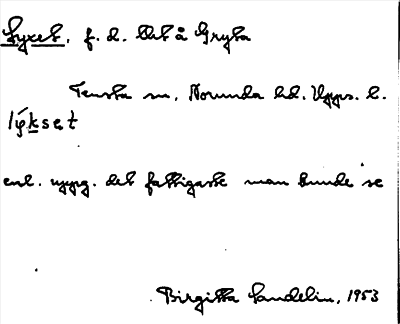 Lyxet, f. d. båt å Gryta
Tensta sn, Norunda hd. Upps. l.
lýkset
enl. uppg. det fattigaste man kunde se
Birgitta Sandelin, 1953